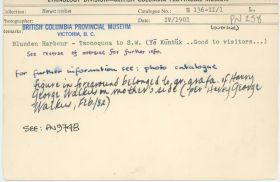 ETHNOLOGY DIVISION-BRITISH COLUMBIA PROVINCIAL MUSEUM
Catalogue No.: N 136-II/1 L
BRITISH COLUMBIA PROVINCIAL MUSEUM
VICTORIA, B. C.
Date: IV/1901
PN 258
Blunden Harbour - Tsonoqua to S.W. (Ye Kuntux ..Good to visitors...)
See reverse of overuse for further info.
For further information see: photo catalogue
figure in foreground belonged to gr. grafa. of Henry
George Walkus on mother's side (per Henry George
Walkus, Feb/82)
SEE: PN9798